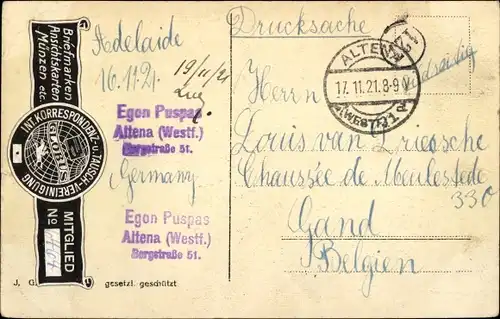 Briefmarken
Ansichtskarten
Münzen etc.
INT. KORRESPONDENZ- U. TAUSCH-VEREINIGUNG
GLOBUS
MITGLIED
No
J. G.
gesetzl. geschützt
Adelaide
16.11.21.
19/11/21
Egon Puspas
Altena (Westf.)
Bergstraße 51.
Germany
Egon Puspas
Altena (Westf.)
Bergstraße 51.
Drucksache
ALTENA
17.11.21.8-9V
(WESTF.)
Herrn
Louis van Driessche
Chaussée de Meulestede
330
Gand
Belgien